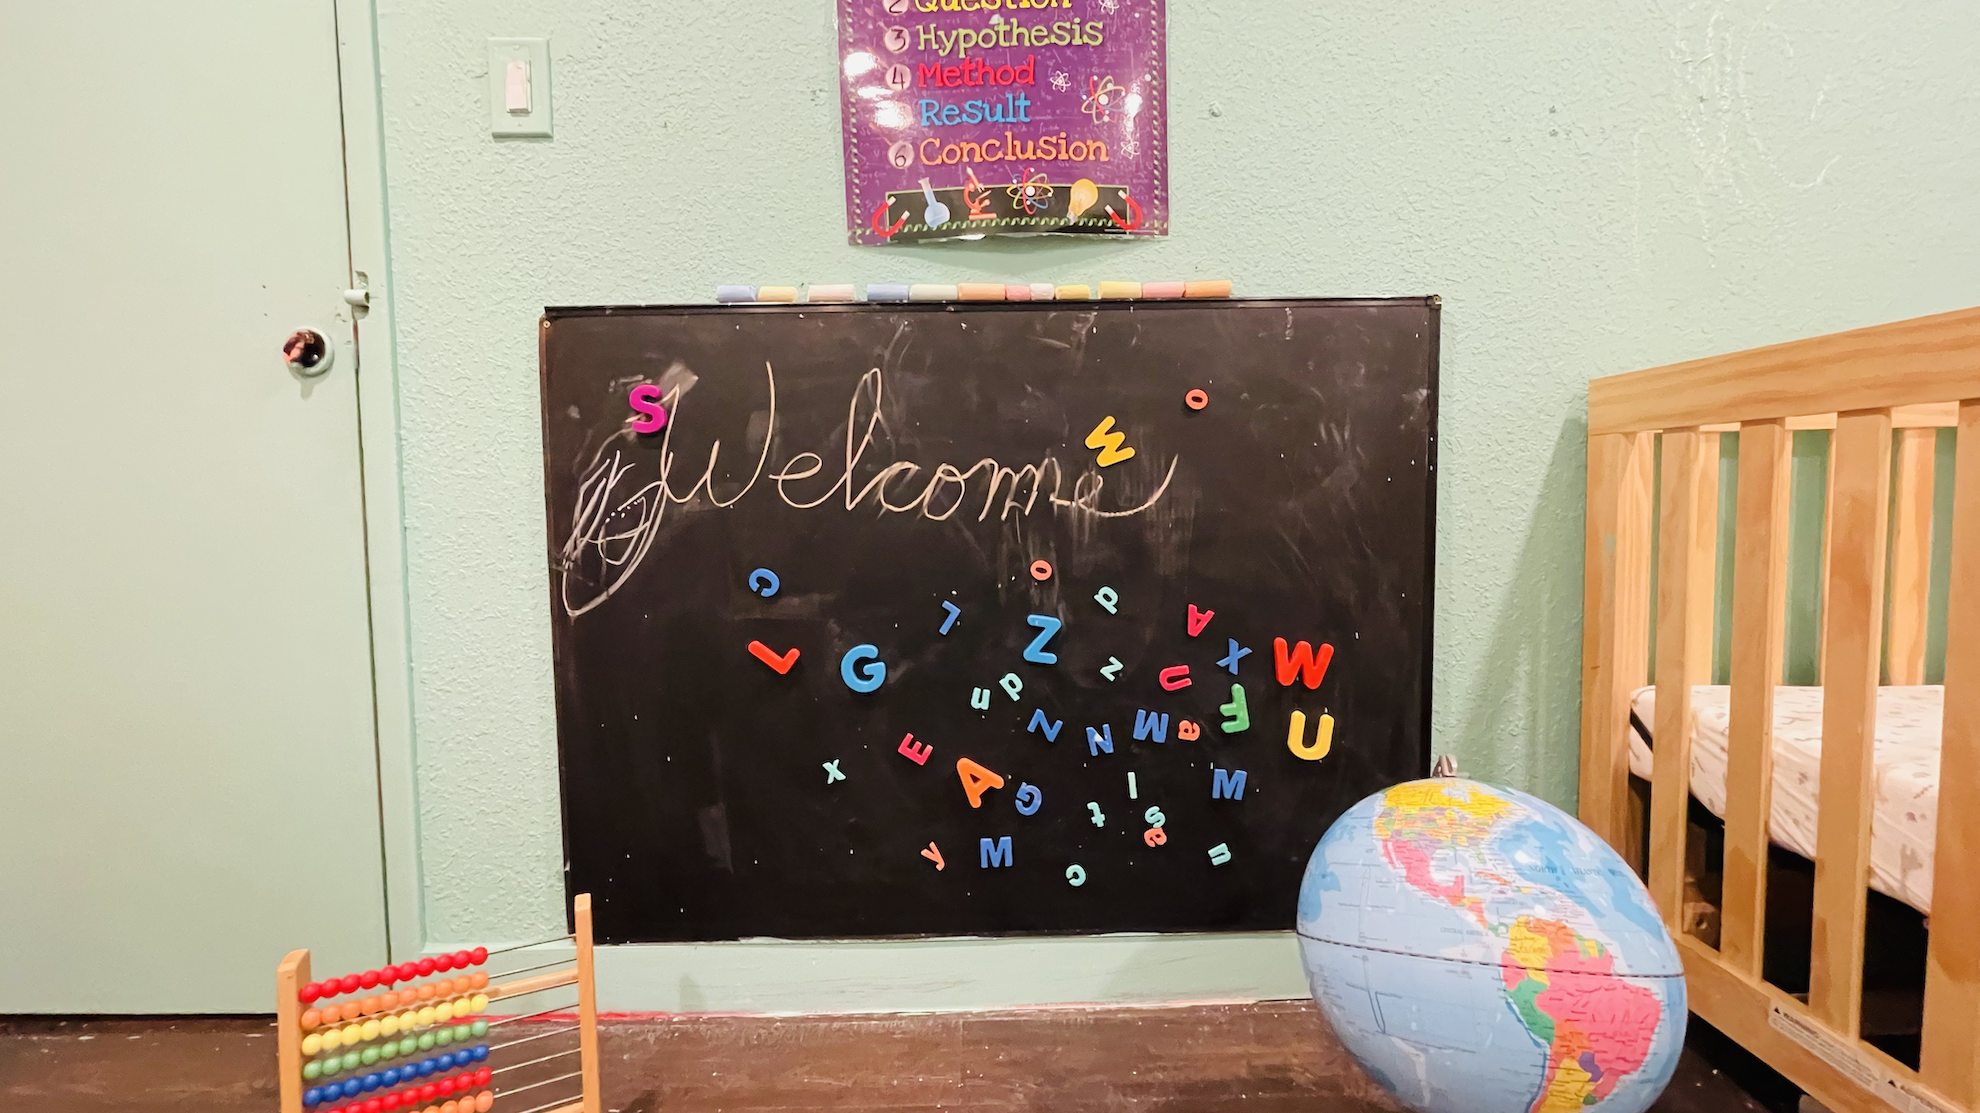 2 Question
3 Hypothesis
4 Method
Result
6 Conclusion
Welcome
S
M
o
C
o
d
L
A
L
G
Z
z
X
W
u
d
U
F
N
N
M
a
U
E
x
A
G
l
M
t
s
e
y
M
c
u
NORTH
WARNING